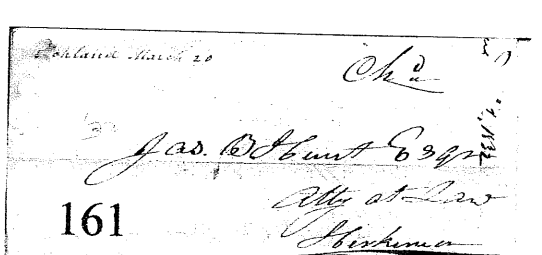 March 20
Chd
Jas. B Hunt Esqr
Atty at Law
Herkimer
161